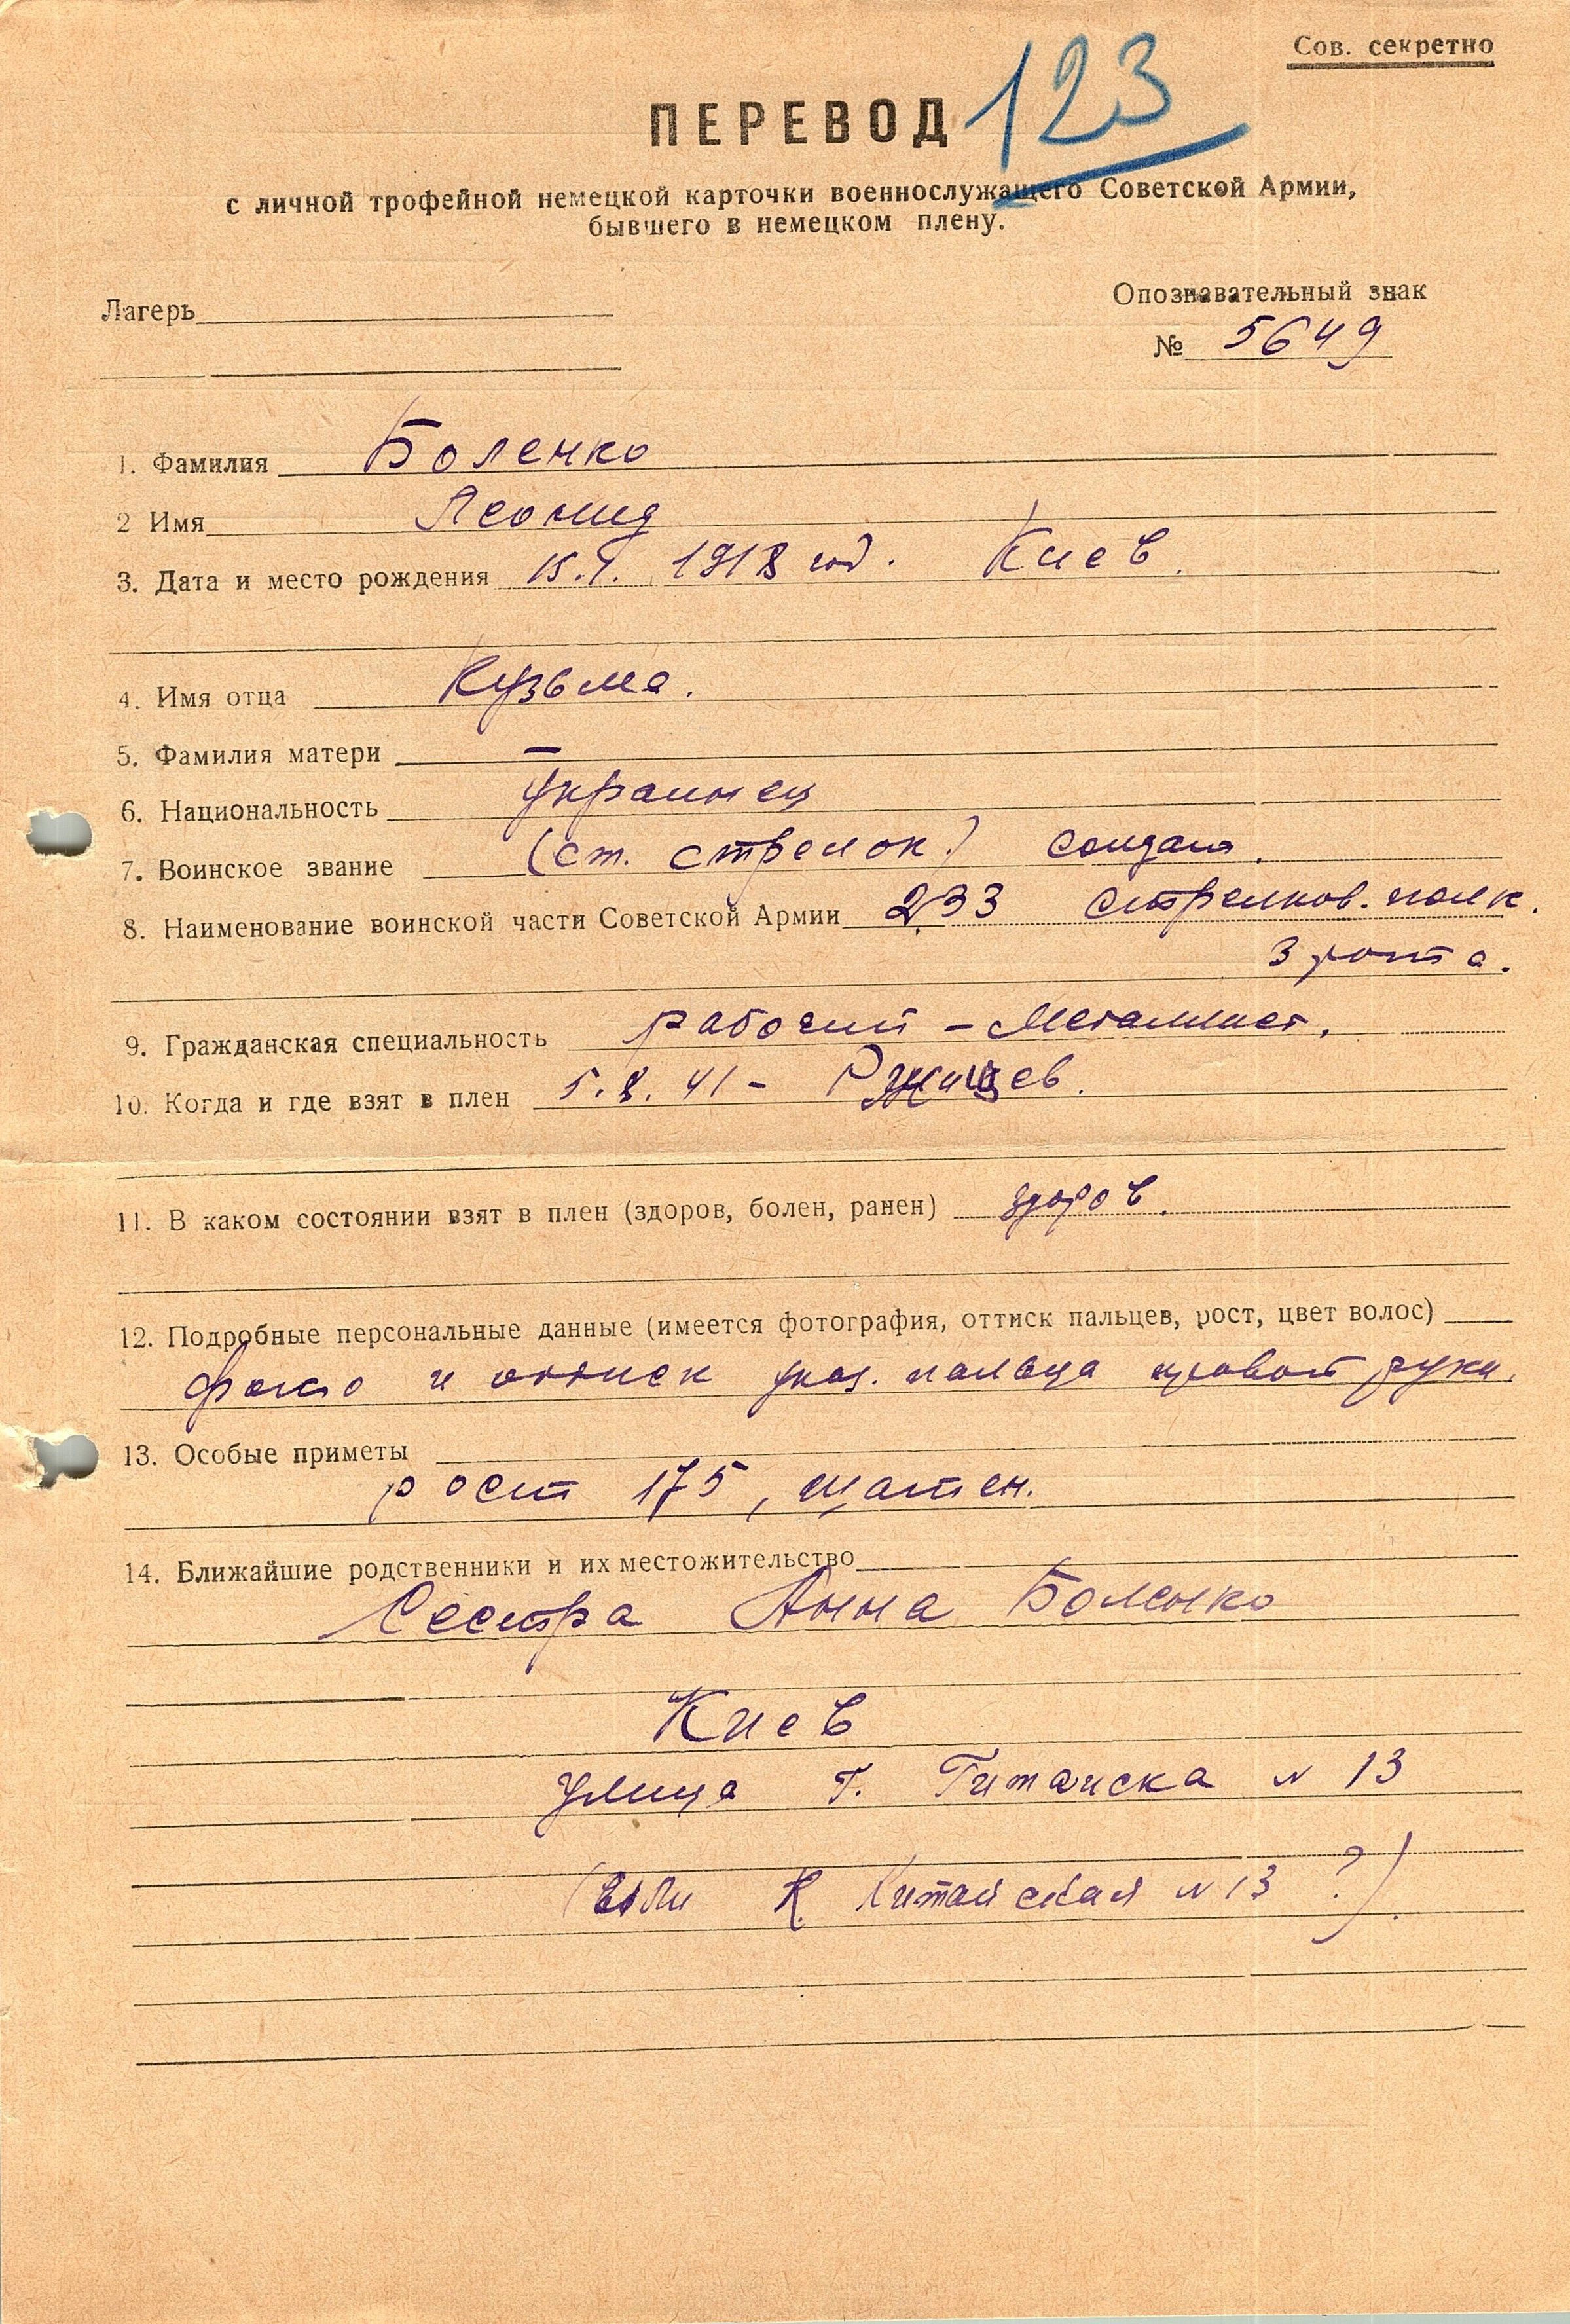 Сов. секретно
123
ПЕРЕВОД
с личной трофейной немецкой карточки военнослужащего Советской Армии,
бывшего в немецком плену.
Лагерь
Опознавательный знак
№ 5649
1. Фамилия Боленко
2 Имя Леонид
3. Дата и место рождения 15.I. 1918 год. Киев.
4. Имя отца Кузьма.
5. Фамилия матери —
6. Национальность Украинец
7. Воинское звание (ст. стрелок) солдат.
8. Наименование воинской части Советской Армии 233 стрелков. полк.
3 рота.
9. Гражданская специальность рабочий - металлист.
10. Когда и где взят в плен 5.8.41 - Ржищев.
11. В каком состоянии взят в плен (здоров, болен, ранен) здоров.
12. Подробные персональные данные (имеется фотография, оттиск пальцев, рост, цвет волос)
фото и оттиск указ. пальца правой руки.
13. Особые приметы
рост 175, шатен.
14. Ближайшие родственники и их местожительство
Сестра Анна Боленко
Киев
улица Г. Гитайска N 13
(или К. Китайская N 13 ?).